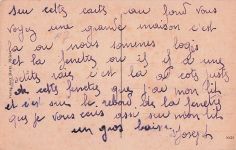 sur cette carte au fond vous
voyez une grande maison c'est
là ou nous sommes logés
et la fenetre ou il y a une
petite raie c'est la a coté juste
de cette fenetre que j'ai mon lit
et c'est sur le rebord de la fenetre
que je vous ecris assi sur mon lit
un gros baiser
Joseph